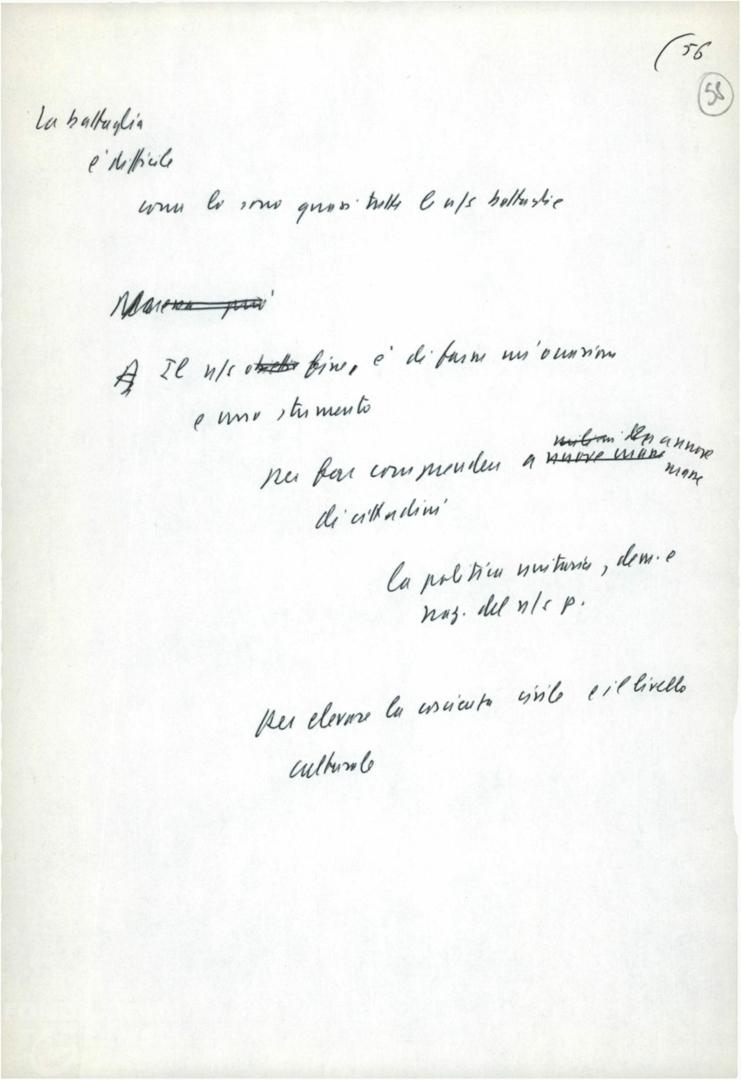 (56
58
La battaglia
è difficile
come lo sono quasi tutte le n/s battaglie
A Il n/s fine, è di farne un'occasione
e uno strumento
per far comprendere a nuove masse
di cittadini
la politica unitaria, dem. e
naz. del n/s p.
per elevare la coscienza civile e il livello
culturale